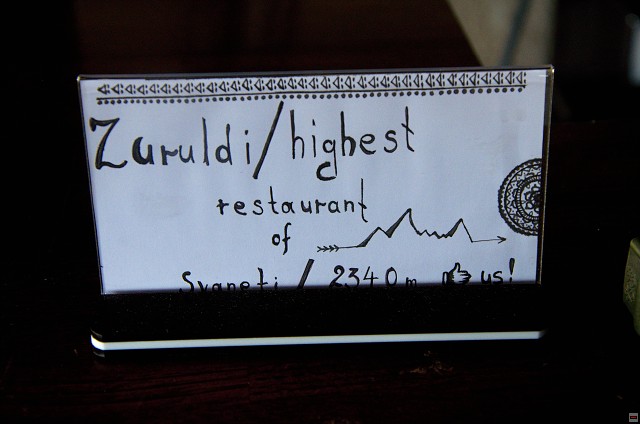 Zuruldi/highest
restaurant
of
Svaneti / 2340m us!